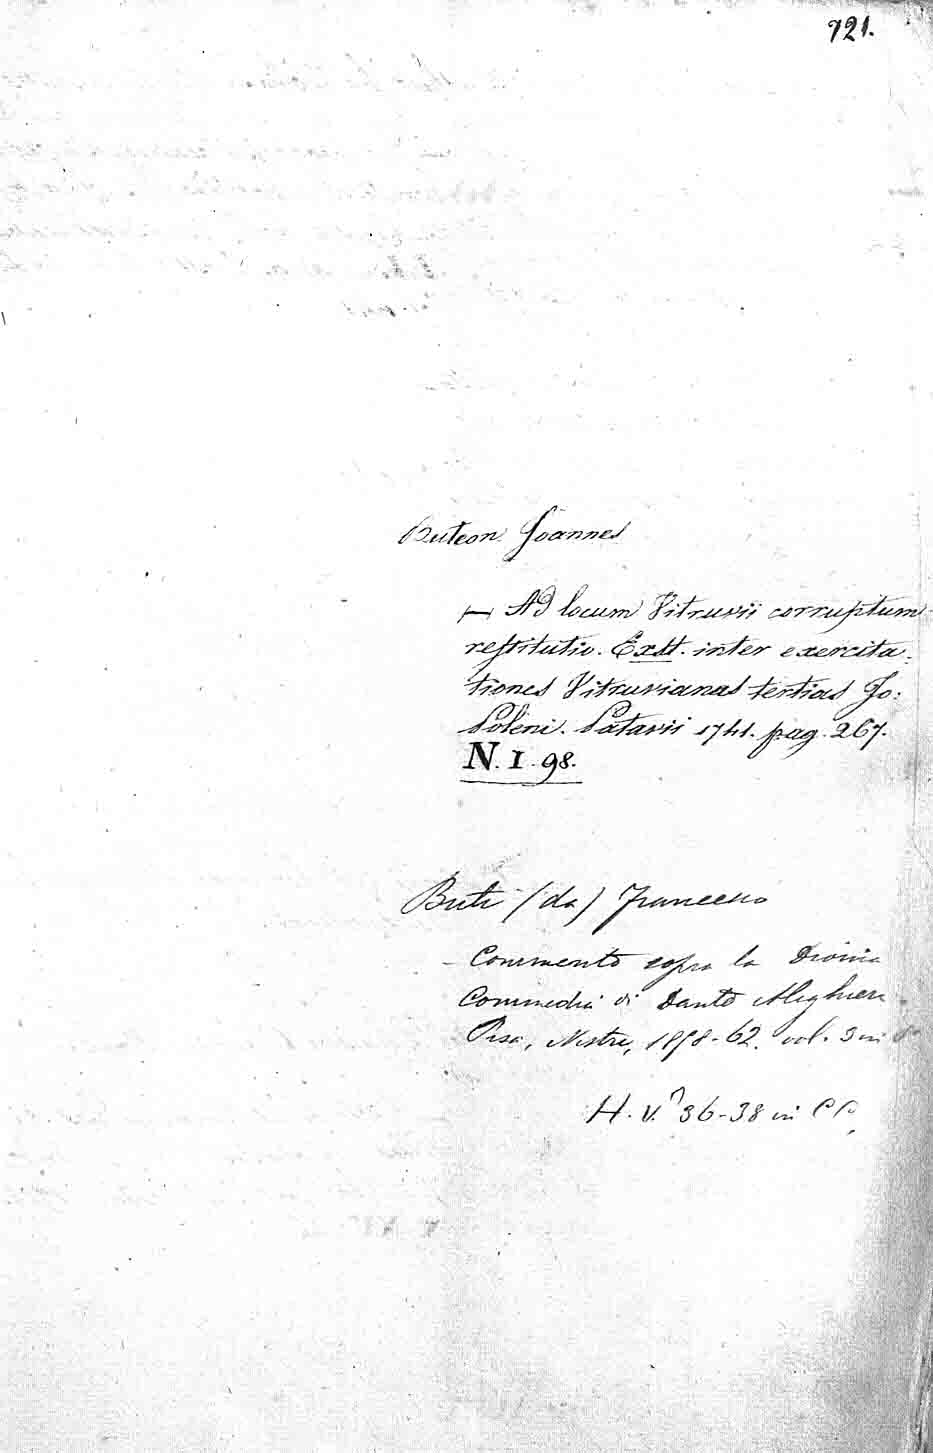 921.
Buteon Joannes
— Ad locum Vitruvii corruptum
restitutio. Exst. inter exercita-
tiones Vitruvianas tertias Jo:
Poleni. Patavii 1741. pag. 267.
N. I. 98.
Buti (da) Francesco
- Commento sopra la Divina
Commedia di Dante Alighieri
Pisa, Nistri, 1858-62. vol. 3 in 8°
H. V. 36-38 in